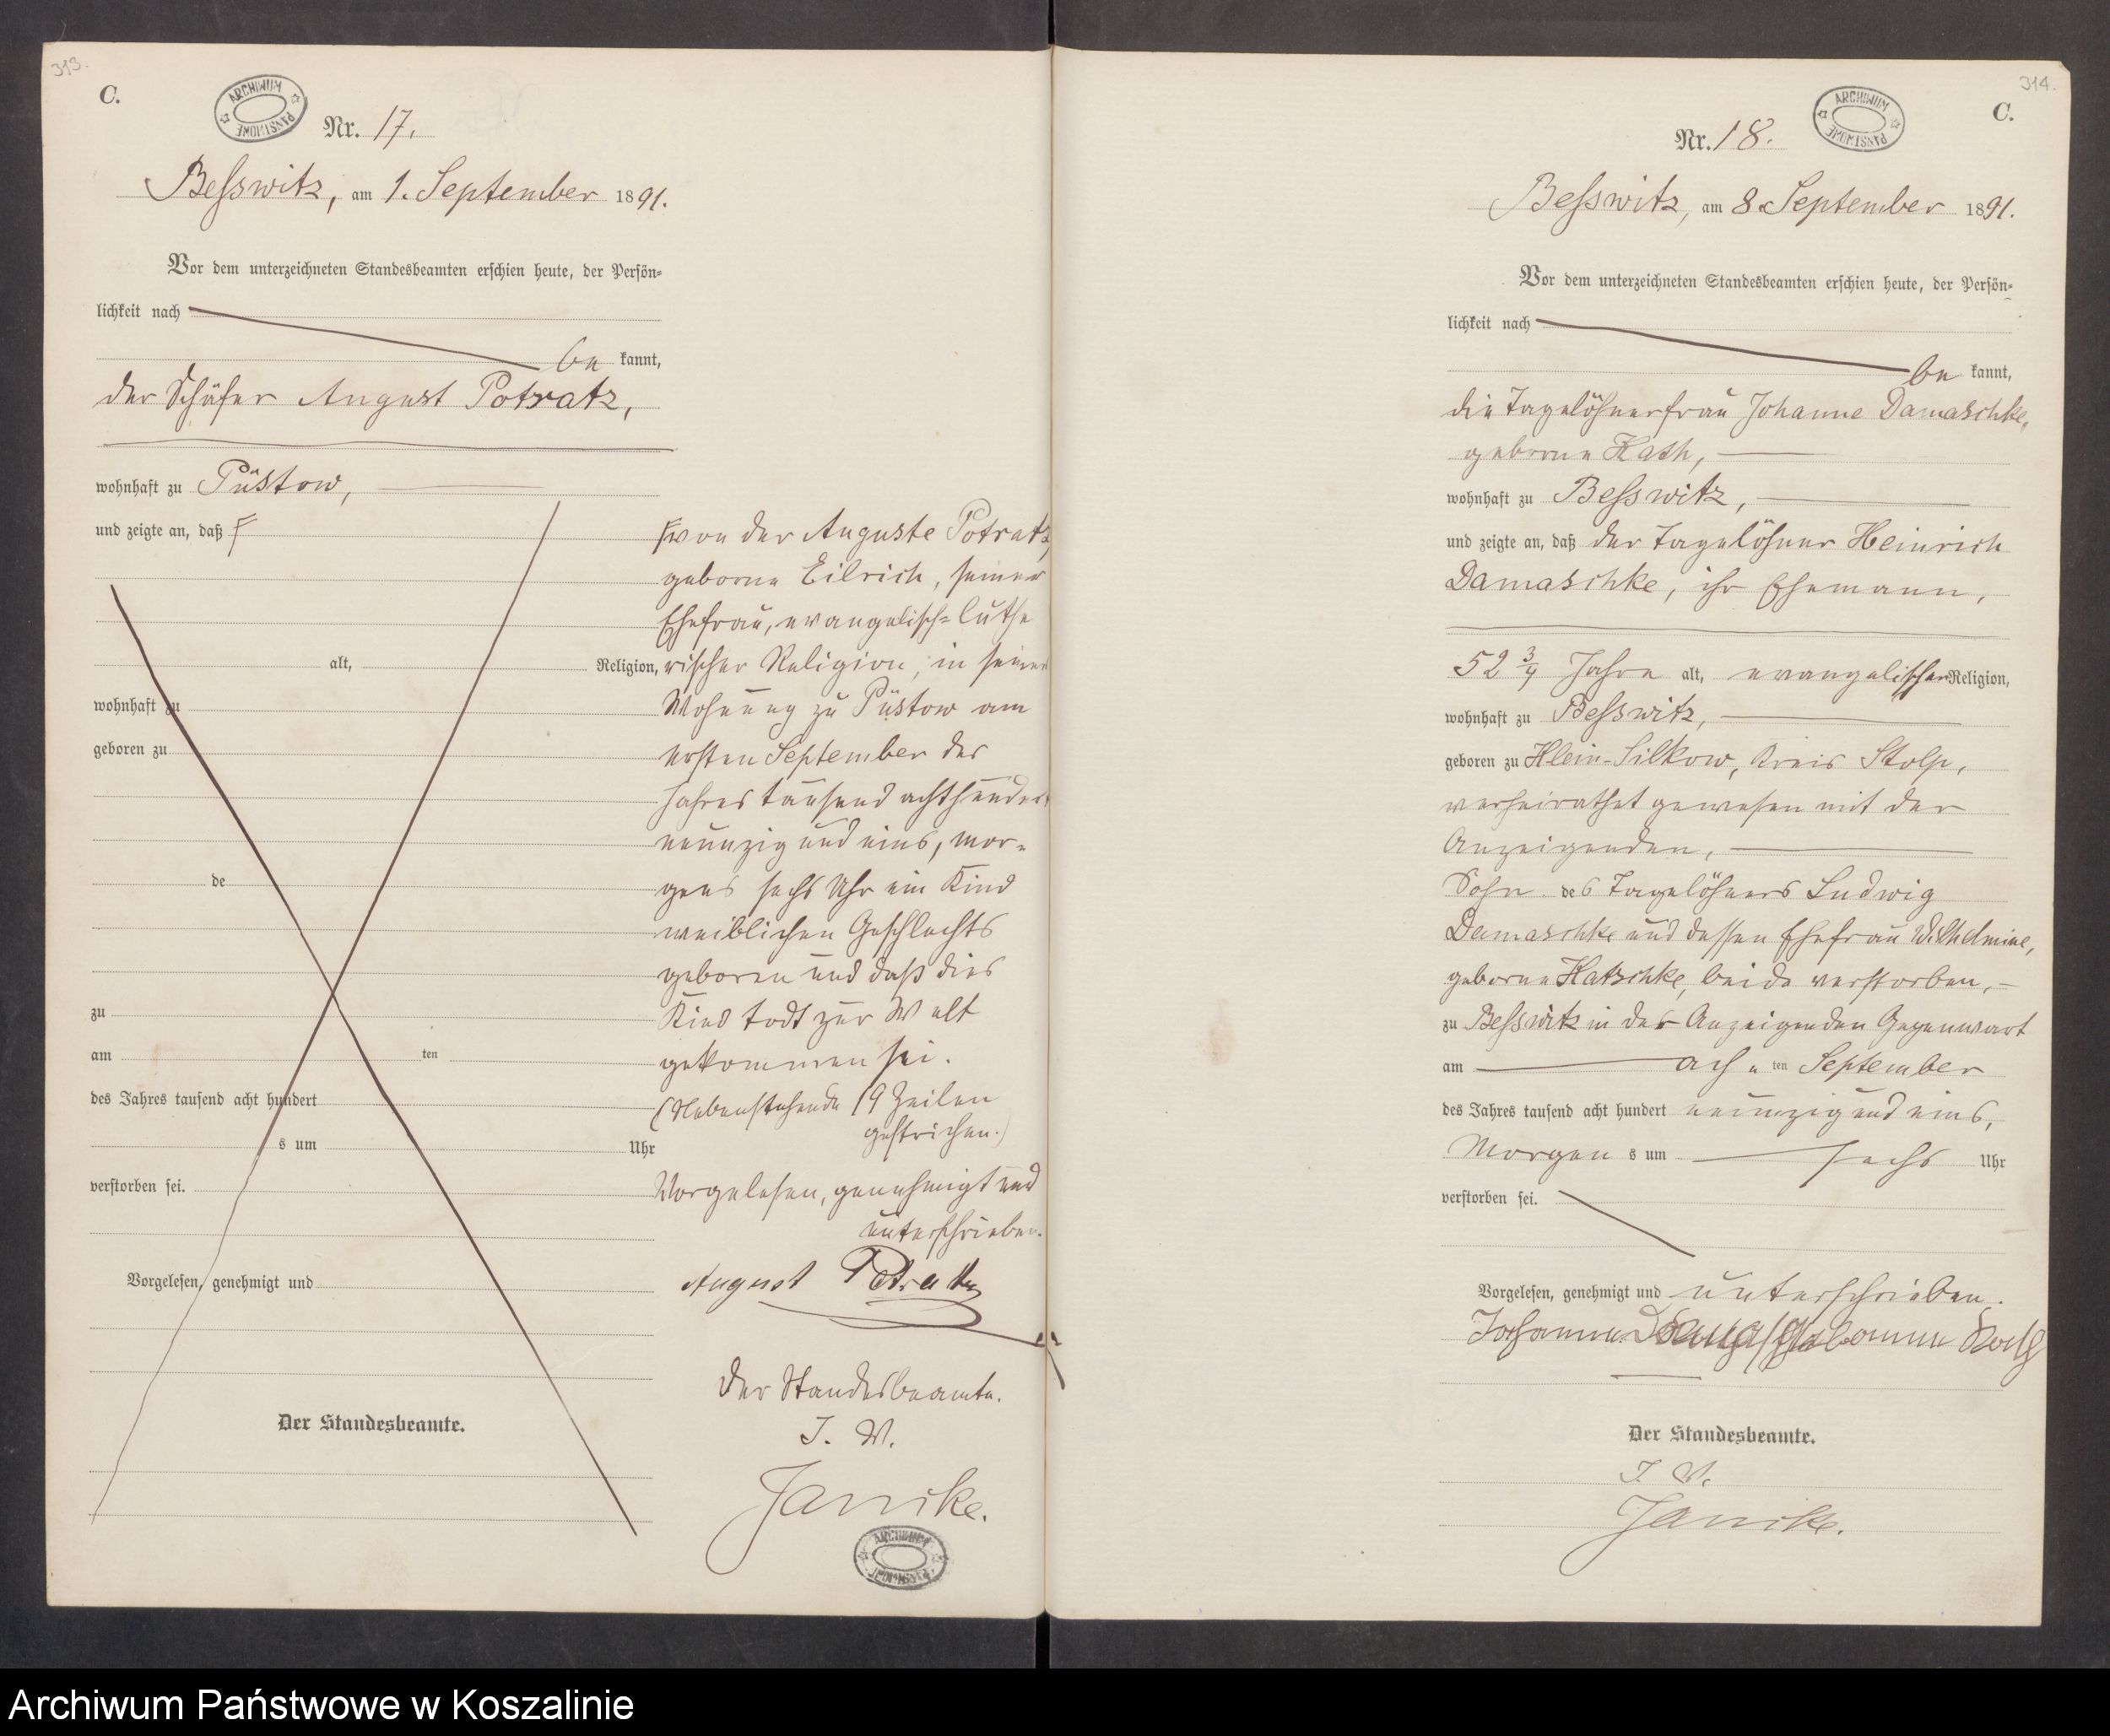 313.
C.
ARCHIWUM PAŃSTWOWE
Nr. 17.
Besswitz, am 1. September 1891.
Vor dem unterzeichneten Standesbeamten erschien heute, der Persön-
lichkeit nach
be kannt,
der Schäfer August Potratz,
wohnhaft zu Püstow,
und zeigte an, daß
alt, Religion,
wohnhaft zu
geboren zu
de
zu
am ten
des Jahres tausend acht hundert
s um Uhr
verstorben sei.
Vorgelesen, genehmigt und
Der Standesbeamte.
von der Auguste Potratz,
geborne Eilrich, seiner
Ehefrau, evangelisch-luthe
rischer Religion, in seiner
Wohnung zu Püstow am
ersten September des
Jahres tausend achthundert
neunzig und eins, mor-
gens sechs Uhr ein Kind
weiblichen Geschlechts
geboren und daß dies
Kind todt zur Welt
gekommen sei.
(Nebenstehende 19 Zeilen
gestrichen.)
Vorgelesen, genehmigt und
unterschrieben.
August Potratz
Der Standesbeamte.
J. V.
Janike.
ARCHIWUM
314.
C.
ARCHIWUM PAŃSTWOWE
Nr. 18.
Besswitz, am 8. September 1891.
Vor dem unterzeichneten Standesbeamten erschien heute, der Persön-
lichkeit nach
be kannt,
die Tagelöhnerfrau Johanne Damaschke,
geborne Kath,
wohnhaft zu Besswitz,
und zeigte an, daß der Tagelöhner Heinrich
Damaschke, ihr Ehemann,
52 3/4 Jahre alt, evangelischer Religion,
wohnhaft zu Besswitz,
geboren zu Klein-Silkow, Kreis Stolp,
verheirathet gewesen mit der
Anzeigenden,
Sohn des Tagelöhners Ludwig
Damaschke und dessen Ehefrau Wilhelmine,
geborne Katschke, beide verstorben,
zu Besswitz in der Anzeigenden Gegenwart
am ach ten September
des Jahres tausend acht hundert neunzig und eins,
Morgen s um sechs Uhr
verstorben sei.
Vorgelesen, genehmigt und unterschrieben.
Johanne geborne
Der Standesbeamte.
J. V.
Janike.
Archiwum Państwowe w Koszalinie